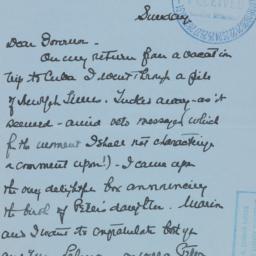 Sunday
RECEIVED
Dear Governor -
On my return from a vacation
trip to Cuba I went through a pile
of New York Times. Tucked away - as it
seemed - amid vote messages (which
for the moment I shall not characterize
or comment upon!) - I came upon
the very delightful box announcing
the birth of Peter's daughter. Marin
and I want to congratulate both you
and Mrs. Lehman